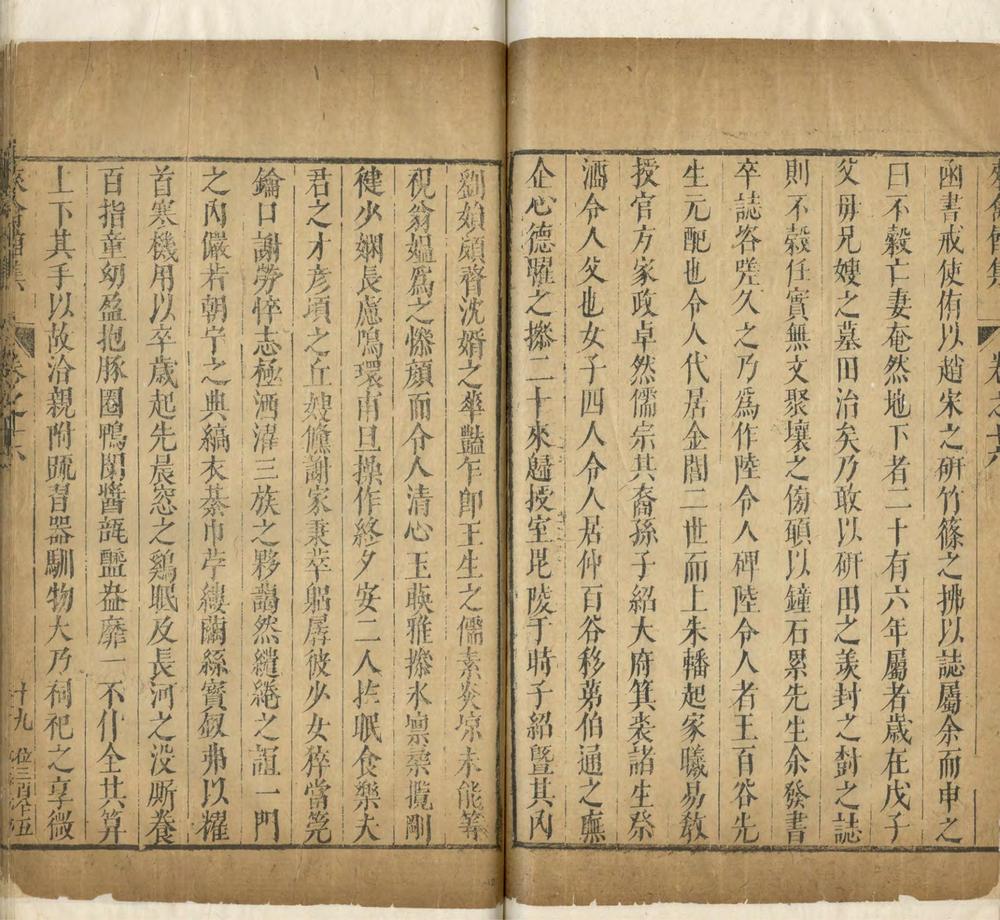 卷之十六
函書戒使侑以趙宋之硏竹篠之拂以誌屬余而申之
曰不穀亡妻奄然地下者二十有六年屬者歲在戊子
父毋兄嫂之墓田治矣乃敢以硏田之羨封之對之誌
則不穀任實無文聚壤之傍碩以鐘石累先生余發書
卒誌咨嗟久之乃爲作陸令人碑陸令人者王百谷先
生元配也令人代居金閶二世而上朱轓起家曦易敎
授官方家政卓然儒宗其裔孫子紹大府箕裘諸生祭
酒令人父也女子四人令人居仲百谷移苐伯通之廡
企心德曜之操二十來歸授室毘陵于時子紹曁其內
劉媍顧齊沈婿之華豔乍卽王生之儒素炎凉未能等
視翁媼爲之慘顏而令人清心玉暎雅操氷凛柔攬剛
徤少嫻長慮鳴環甫旦操作終夕安二人扵眠食樂夫
君之才彦頃之丘嫂儵謝家秉萃躬孱彼少女猝當筦
鑰口謝勞悴志極洒濯三族之夥藹然繾綣之誼一門
之內儼若朝宁之典縞衣綦巾苧縷繭絲寳釵弗以耀
首寒機用以卒歲起先晨窓之鷄眠及長河之没厮養
百指童幼盈抱豚圈鴨闌醬瓿虀盎靡一不什全其算
上下其手以故洽親附疏習器馴物大乃祠祀之享微
十九